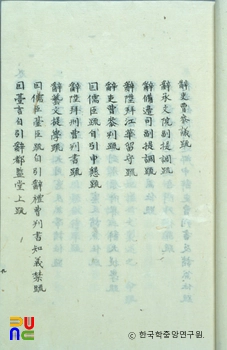 辭吏曹參議疏
辭承文院副提調疏
辭備邊司副提調疏
辭陞拜江華留守疏
辭吏曹參判疏
因儒臣疏自引申懇疏
辭陞拜刑曹判書疏
辭藝文提學疏
因儒臣臺臣疏自引辭禮曹判書知義禁疏
因臺言自引辭都監堂上疏
한국학중앙연구원